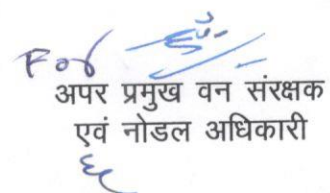 For
अपर प्रमुख वन संरक्षक
एवं नोडल अधिकारी